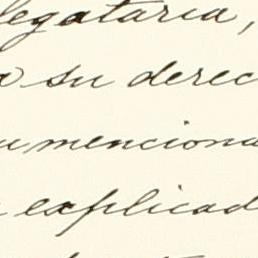 legataria,
su derec
menciona
explicad